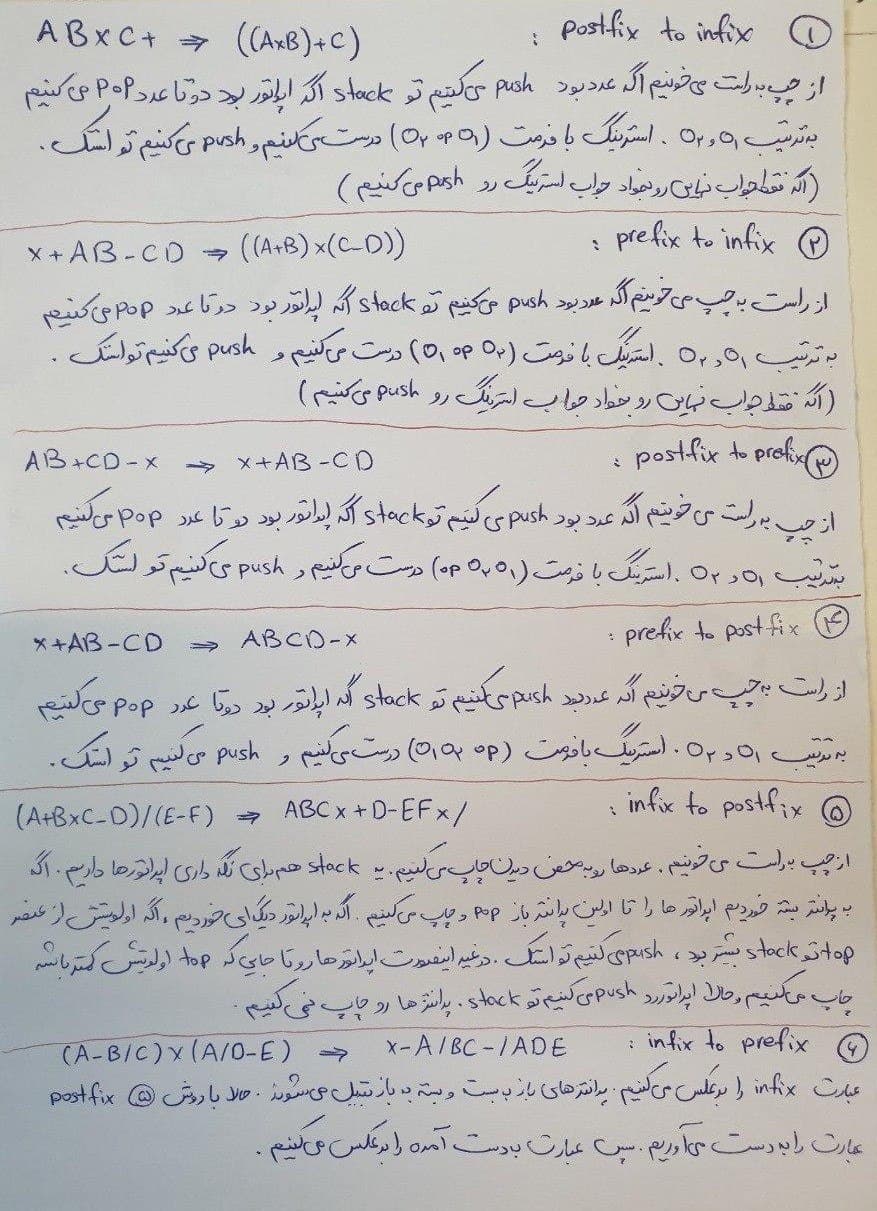 ① postfix to infix : ABxC+ ⇒ ((AxB)+C)
از چپ به راست می خونیم اگه عدد بود push می کنیم تو stack اگه اپراتور بود دو تا عدد pop می کنیم
به ترتیب O۱ و O۲ . استرینگ با فرمت (O۲ op O۱) درست می کنیم و push می کنیم تو استک .
(اگه فقط جواب نهایی رو بخواد جواب استرینگ رو push می کنیم)
② prefix to infix : x+AB-CD ⇒ ((A+B)x(C-D))
از راست به چپ می خونیم اگه عدد بود push می کنیم تو stack اگه اپراتور بود دو تا عدد pop می کنیم
به ترتیب O۱ و O۲ . استرینگ با فرمت (O۱ op O۲) درست می کنیم و push می کنیم تو استک .
(اگه فقط جواب نهایی رو بخواد جواب استرینگ رو push می کنیم)
③ postfix to prefix : AB+CD-x ⇒ x+AB-CD
از چپ به راست می خونیم اگه عدد بود push می کنیم تو stack اگه اپراتور بود دو تا عدد pop می کنیم
به ترتیب O۱ و O۲ . استرینگ با فرمت (op O۲ O۱) درست می کنیم و push می کنیم تو استک .
④ prefix to postfix : x+AB-CD ⇒ ABCD-x
از راست به چپ می خونیم اگه عدد بود push می کنیم تو stack اگه اپراتور بود دو تا عدد pop می کنیم
به ترتیب O۱ و O۲ . استرینگ با فرمت (O۱ O۲ op) درست می کنیم و push می کنیم تو استک .
⑤ infix to postfix : (A+BxC-D)/(E-F) ⇒ ABCx+D-EFx/
از چپ به راست می خونیم . عددها رو به محض دیدن چاپ می کنیم . یه stack هم برای نگه داری اپراتورها داریم . اگه
به پرانتز بسته خوردیم اپراتور ها را تا اولین پرانتز باز pop و چاپ می کنیم . اگه به اپراتور دیگه ای خوردیم ، اگه اولویتش از عنصر
top تو stack بیشتر بود ، push می کنیم تو استک . در غیر اینصورت اپراتورها رو تا جایی که top اولویتش کمتر باشه
چاپ می کنیم و حالا اپراتور رو push می کنیم تو stack . پرانتز ها رو چاپ نمی کنیم .
⑥ infix to prefix : (A-B/C)x(A/D-E) ⇒ x-A/BC-/ADE
عبارت infix را برعکس می کنیم . پرانتزهای باز به بسته و بسته به باز تبدیل می شوند . حالا با روش ⑤ postfix
عبارت را به دست می آوریم . سپس عبارت به دست آمده را برعکس می کنیم .